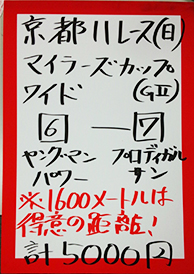 京都11レース(日)
マイラーズカップ
ワイド (GⅡ)
6 ― 7
ヤングマン プロディガル
パワー サン
※1600メートルは
得意の距離!
計5000円